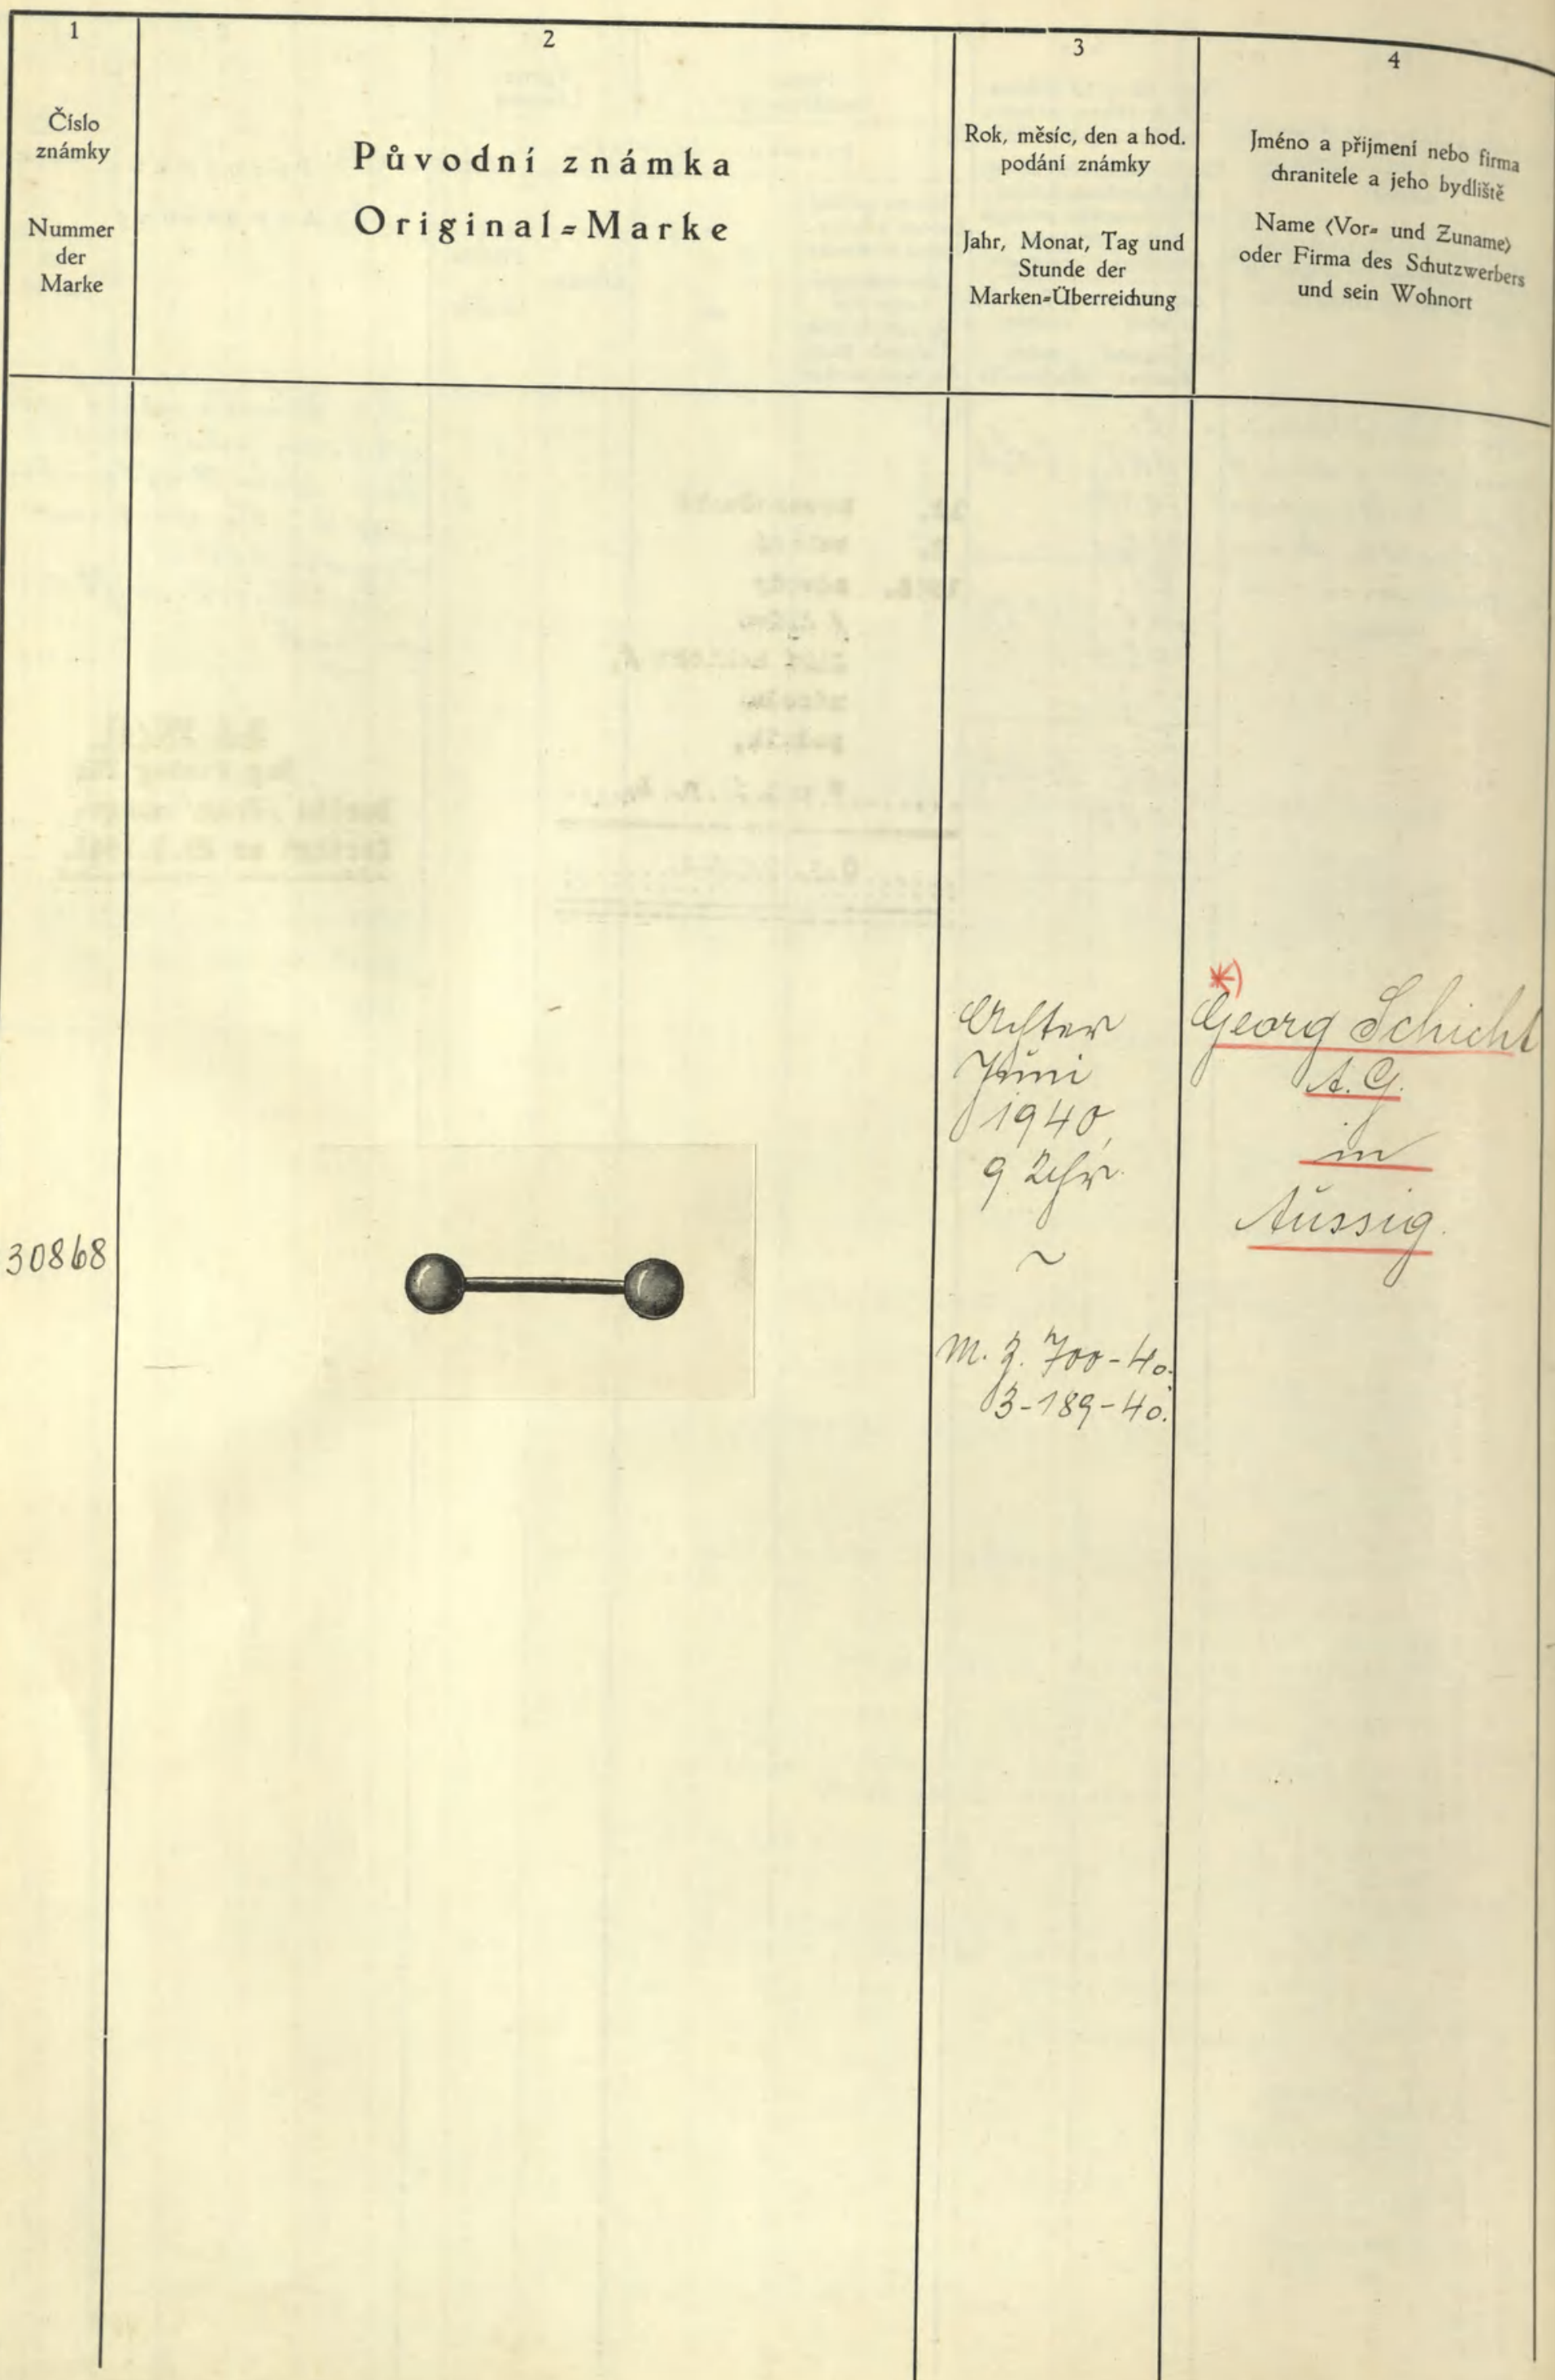 1
Číslo
známky
Nummer
der
Marke
2
Původní známka
Original=Marke
3
Rok, měsíc, den a hod.
podání známky
Jahr, Monat, Tag und
Stunde der
Marken=Überreichung
4
Jméno a přijmení nebo firma
chranitele a jeho bydliště
Name (Vor= und Zuname)
oder Firma des Schutzwerbers
und sein Wohnort
30868
Achter
Juni
1940,
9 Uhr.
~
M. Z. 700-40.
3-189-40.
*)
Georg Schicht
A. G.
in
Aussig.